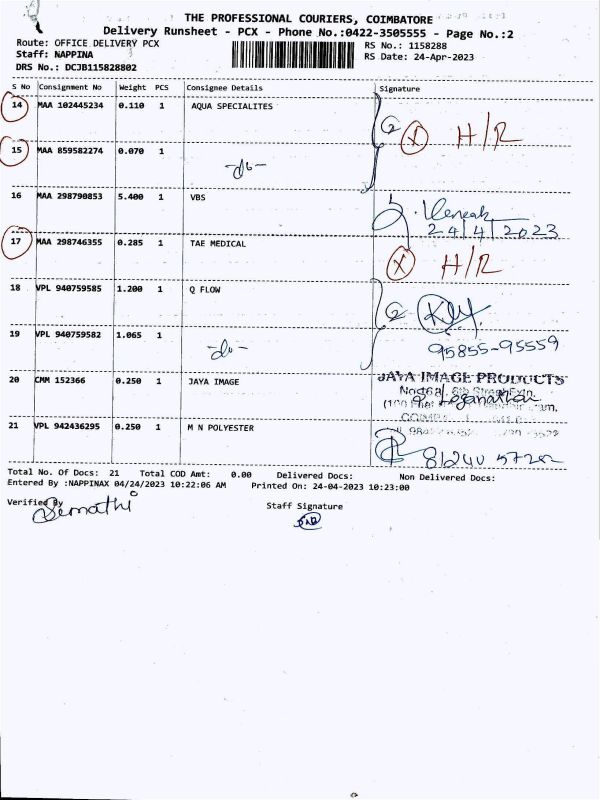 THE PROFESSIONAL COURIERS, COIMBATORE
Delivery Runsheet - PCX - Phone No.:0422-3505555 - Page No.:2
Route: OFFICE DELIVERY PCX RS No.: 1158288
Staff: NAPPINA RS Date: 24-Apr-2023
DRS No.: DCJB115828802
S No Consignment No Weight PCS Consignee Details Signature
14 MAA 102445234 0.110 1 AQUA SPECIALITES
2 X H/R
15 MAA 859582274 0.070 1
-do-
16 MAA 298790853 5.400 1 VBS
24/4/2023
17 MAA 298746355 0.285 1 TAE MEDICAL
X H/R
18 VPL 940759585 1.200 1 Q FLOW
2
19 VPL 940759582 1.065 1
-do- 95855-95559
20 CMM 152366 0.250 1 JAYA IMAGE JAYA IMAGE PRODUCTS
21 VPL 942436295 0.250 1 M N POLYESTER
Total No. Of Docs: 21 Total COD Amt: 0.00 Delivered Docs: Non Delivered Docs:
Entered By :NAPPINAX 04/24/2023 10:22:06 AM Printed On: 24-04-2023 10:23:00
Verified By
Staff Signature